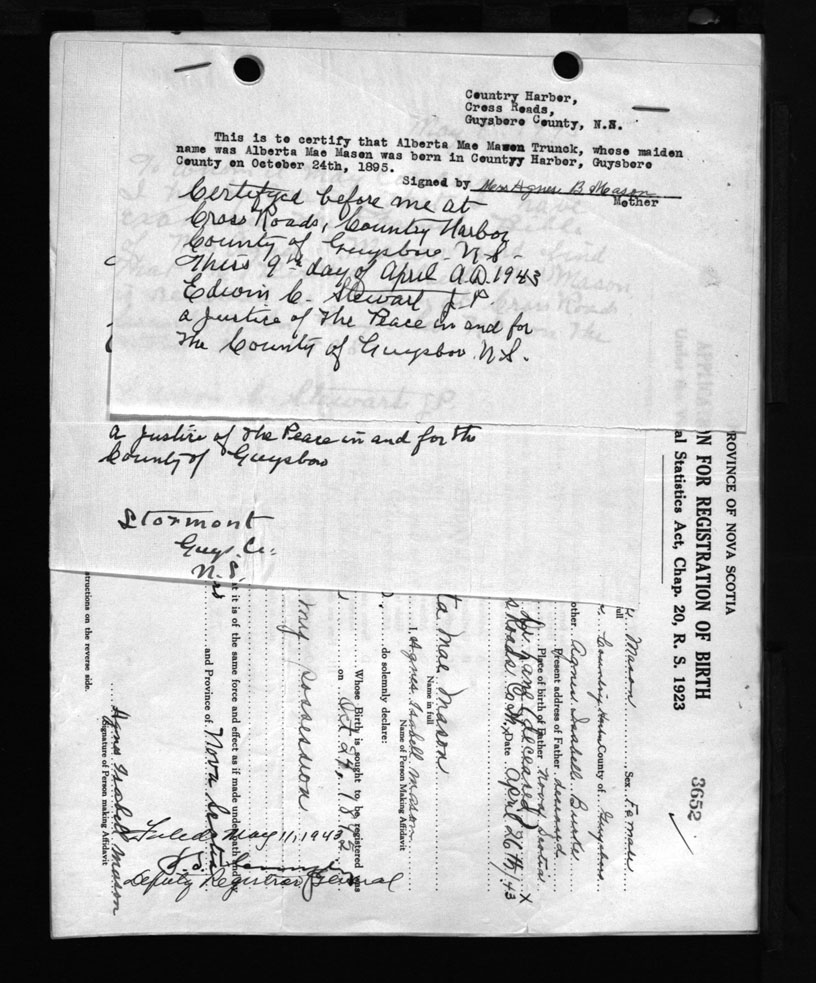 Country Harbor,
Cross Roads,
Guysboro County, N.S.
This is to certify that Alberta Mae Mason Trunck, whose maiden
name was Alberta Mae Mason was born in Countyy Harbor, Guysboro
County on October 24th, 1895.
Signed by Mrs Agnes B. Mason
Mother
Certifyed before me at
Cross Roads, Country Harbor
County of Guysboro N.S.
This 9th day of April A.D. 1943
Edwin C. Stewart J.P
a Justice of the Peace in and for
the County of Guysboro N.S.
a Justice of the Peace in and for the
County of Guysboro
Stormont
Guys. Co.
N.S.
PROVINCE OF NOVA SCOTIA
ON FOR REGISTRATION OF BIRTH
al Statistics Act, Chap. 20, R. S. 1923
3652
Mason Sex Female
County of Guysboro
other Agnes Isabell Burke
Present address of Father deceased
Place of birth of Father Nova Scotia
(deceased) x
s Roads Co. Date April 26th/43
ta Mae Mason
Name in full
I, Agnes Isabell Mason
Name of Person Making Affidavit
do solemnly declare:
Whose Birth is sought to be registered was
on Oct 24, 1895
my possession
at it is of the same force and effect as if made under oath and
and Province of Nova Scotia
Filed May 11, 1943
Deputy Registrar General
Agnes Isabell Mason
Signature of Person making Affidavit
structions on the reverse side.